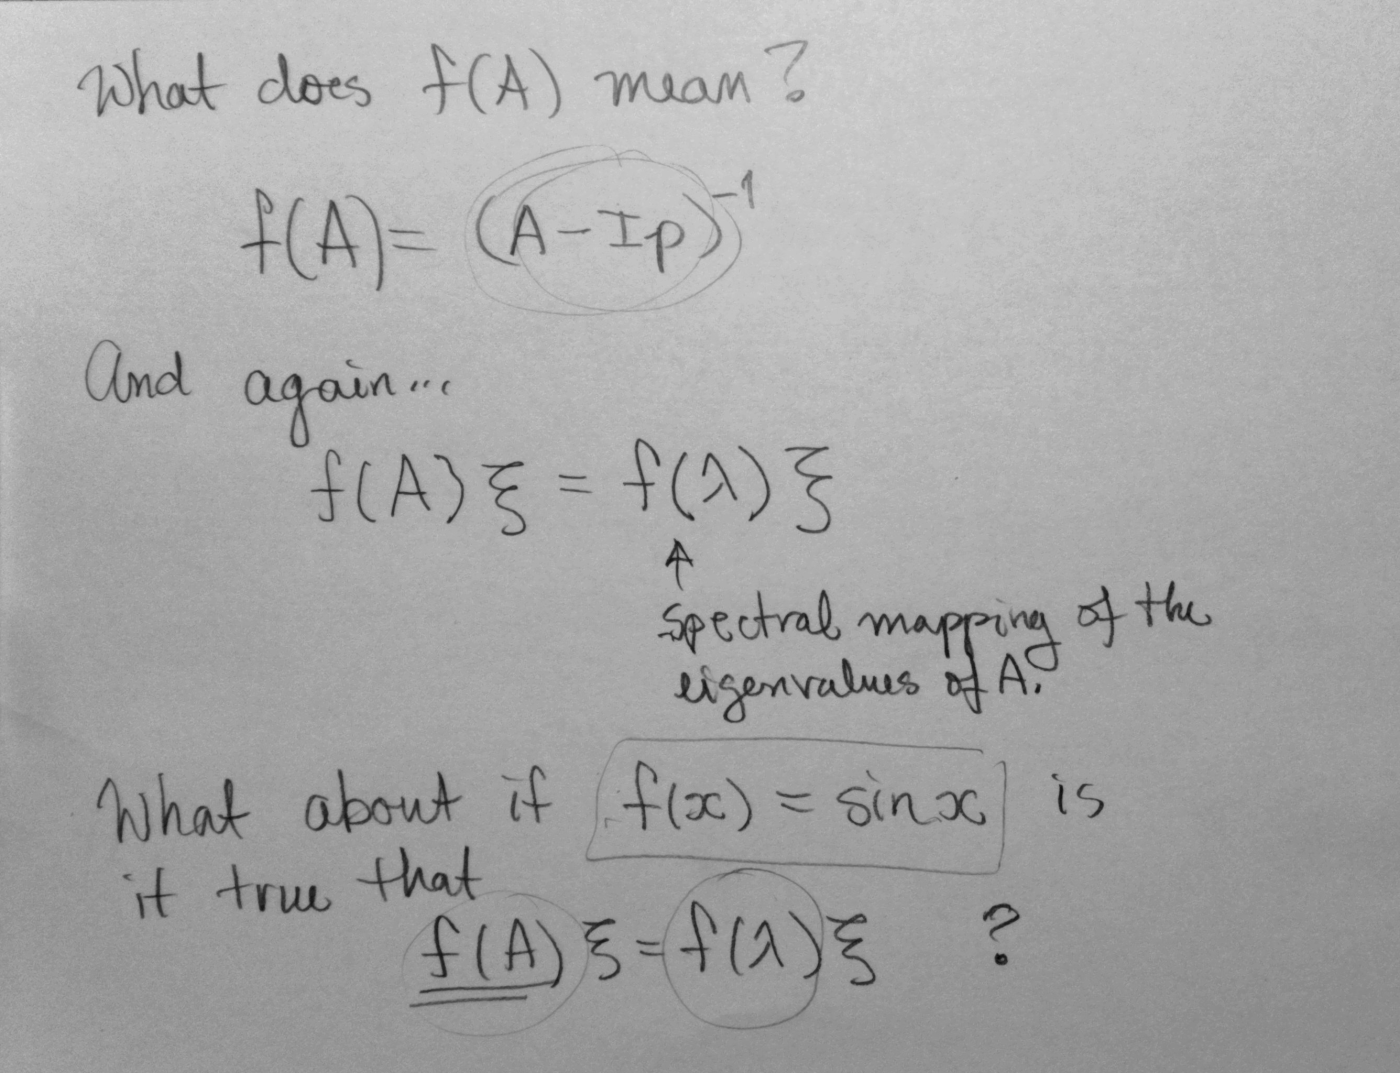 What does f(A) mean?
f(A) = (A - Ip)⁻¹
And again...
f(A) ξ = f(λ) ξ
↑
spectral mapping of the
eigenvalues of A.
What about if f(x) = sin x is
it true that
f(A) ξ = f(λ) ξ ?